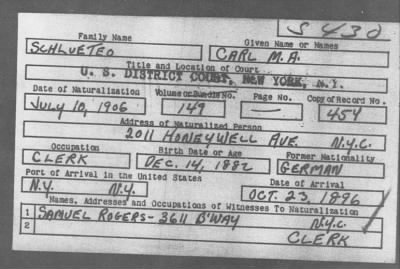 S 430
Family Name Given Name or Names
SCHLUETED CARL M.A.
Title and Location of Court
U. S. DISTRICT COURT, NEW YORK, N.Y.
Date of Naturalization Volume or Bundle No. Page No. Copy of Record No.
JULY 10, 1906 149 — 454
Address of Naturalized Person
2011 HONEYWELL AVE. N.Y.C.
Occupation Birth Date or Age Former Nationality
CLERK DEC. 14, 1882 GERMAN
Port of Arrival in the United States Date of Arrival
N.Y. N.Y. OCT. 23, 1896
Names, Addresses and Occupations of Witnesses To Naturalization
1 SAMUEL ROGERS - 3611 B'WAY N.Y.C.
2 CLERK